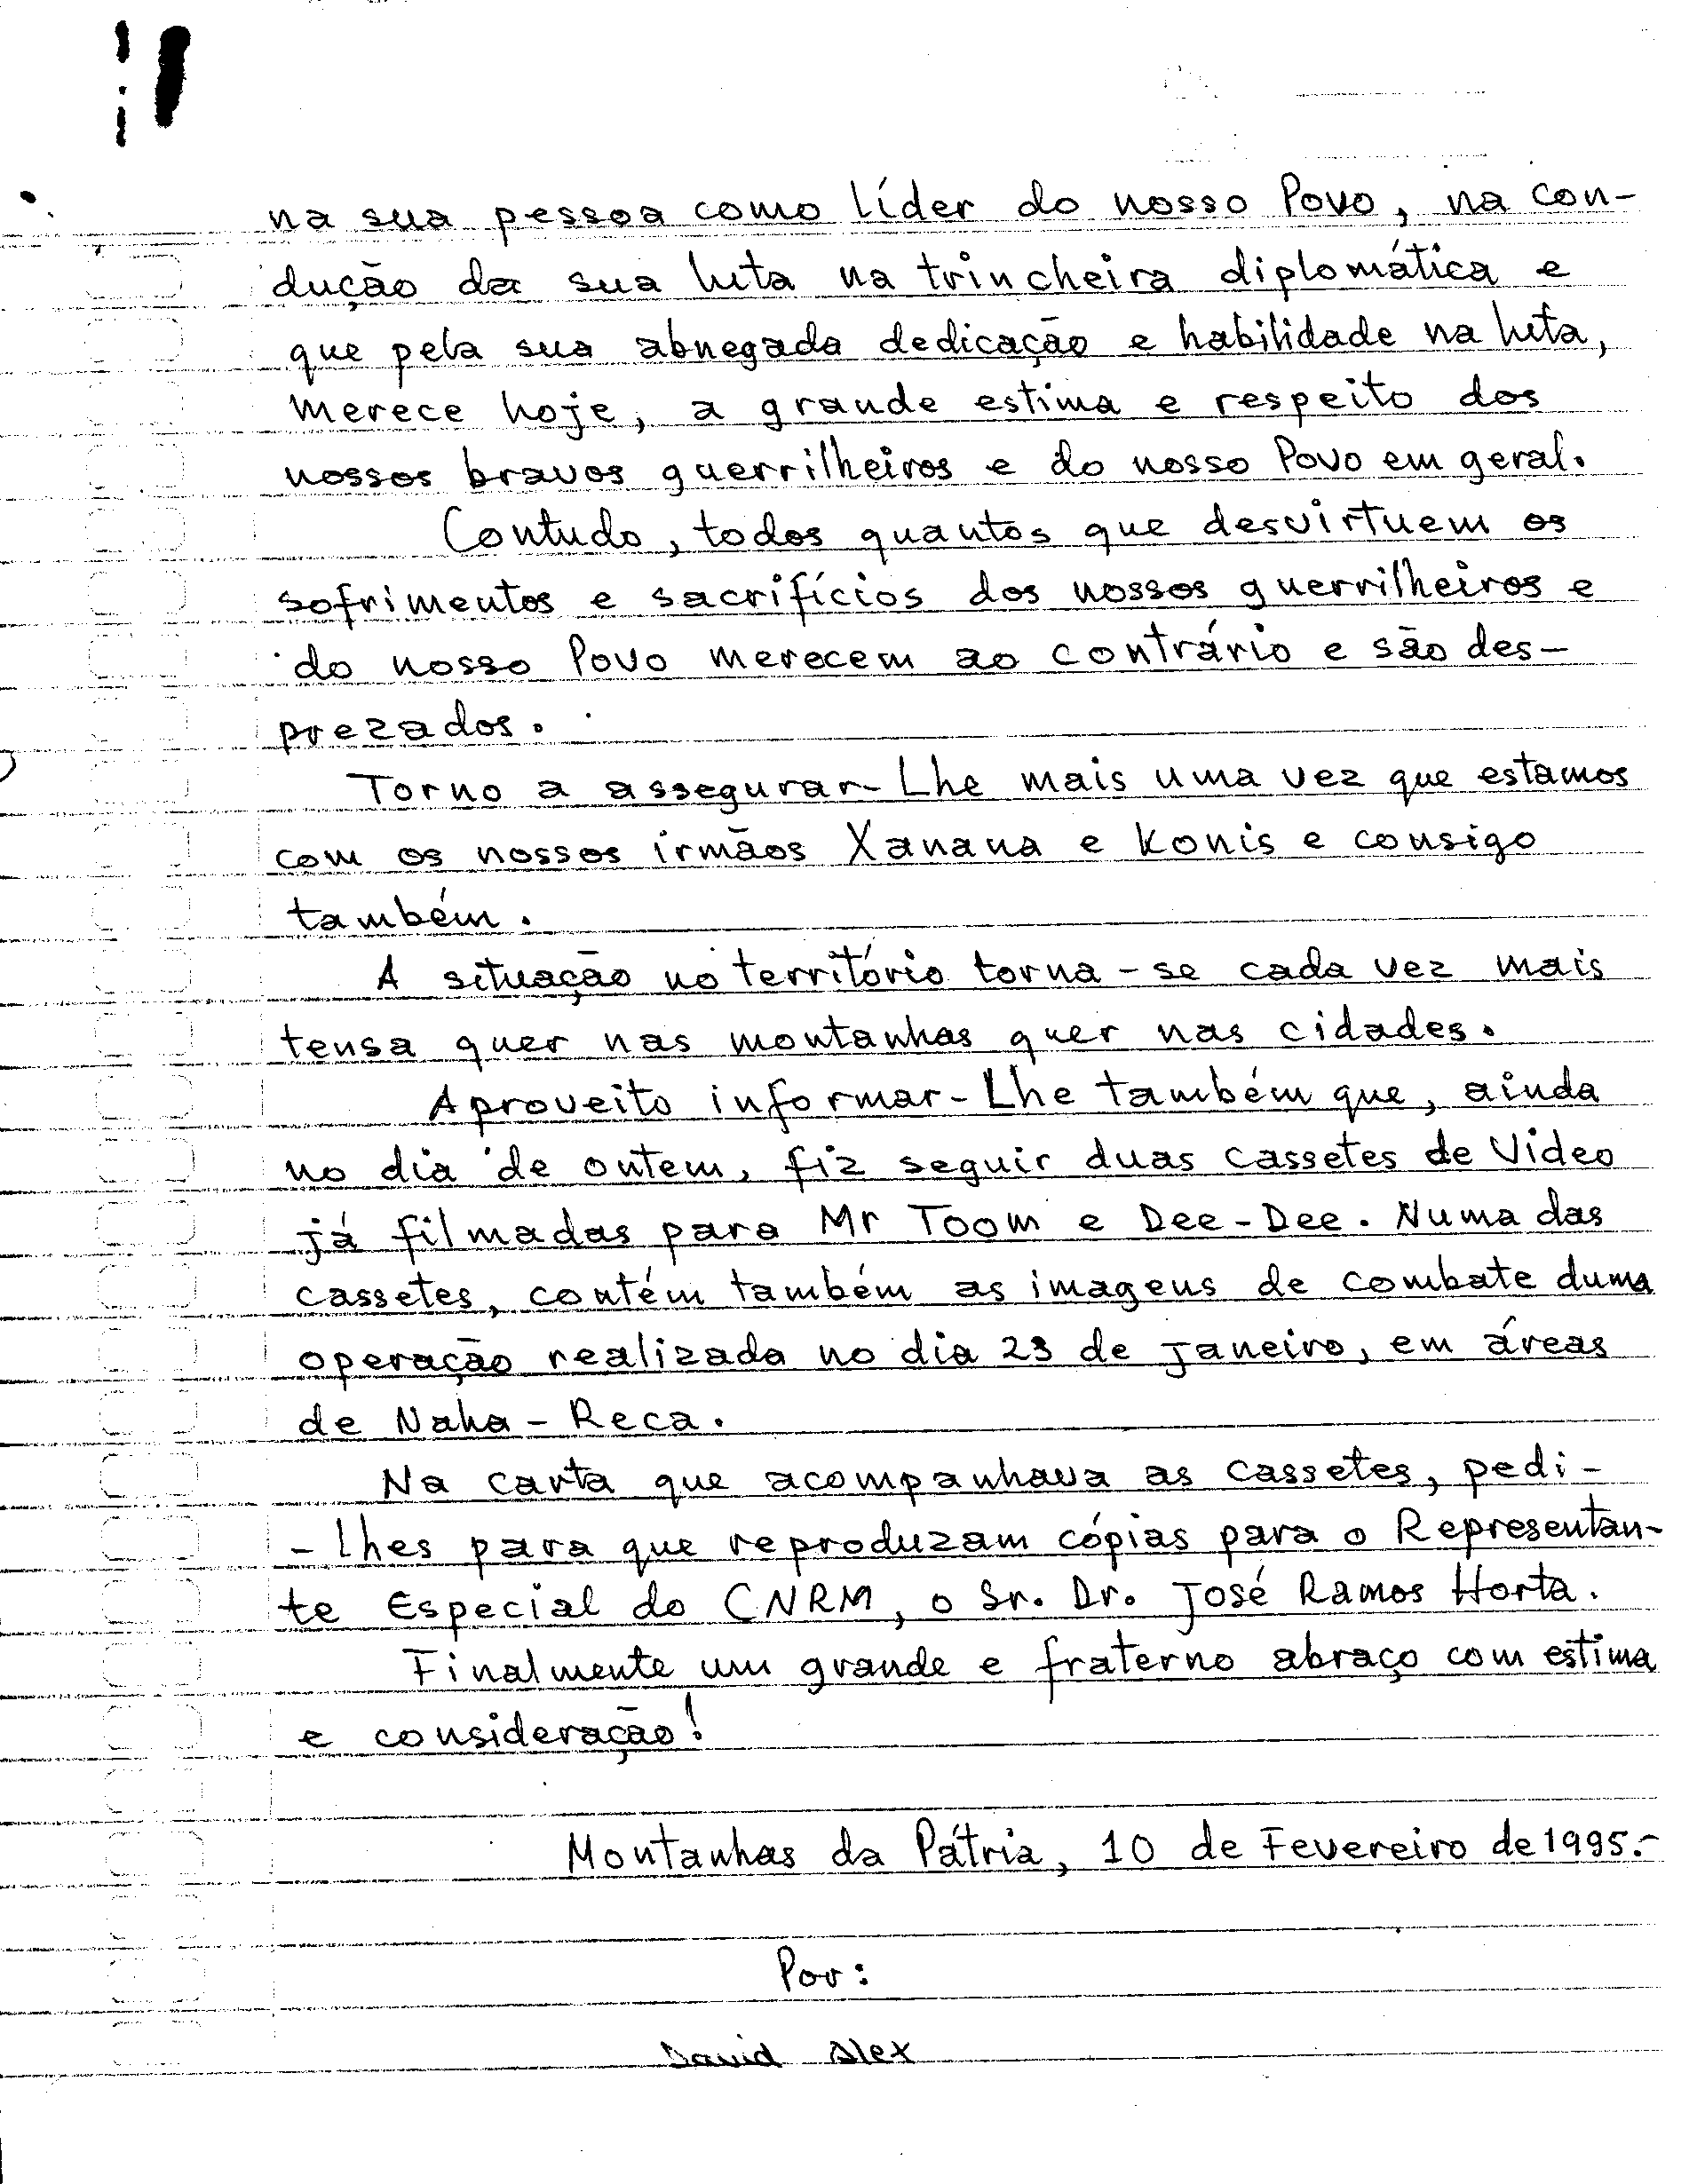 na sua pessoa como líder do nosso Povo, na con-
dução da sua luta na trincheira diplomática e
que pela sua abnegada dedicação e habilidade na luta,
merece hoje, a grande estima e respeito dos
nossos bravos guerrilheiros e do nosso Povo em geral.
Contudo, todos quantos que desvirtuem os
sofrimentos e sacrifícios dos nossos guerrilheiros e
do nosso Povo merecem ao contrário e são des-
prezados.
Torno a assegurar-Lhe mais uma vez que estamos
com os nossos irmãos Xanana e Konis e consigo
também.
A situação no território torna-se cada vez mais
tensa quer nas montanhas quer nas cidades.
Aproveito informar-Lhe também que, ainda
no dia de ontem, fiz seguir duas cassetes de Video
já filmadas para Mr Toom e Dee-Dee. Numa das
cassetes, contém também as imagens de combate duma
operação realizada no dia 23 de Janeiro, em áreas
de Naha-Reca.
Na carta que acompanhava as cassetes, pedi-
-lhes para que reproduzam cópias para o Representan-
te Especial do CNRM, o Sr. Dr. José Ramos Horta.
Finalmente um grande e fraterno abraço com estima
e consideração!
Montanhas da Pátria, 10 de Fevereiro de 1995.-
Por:
David Alex